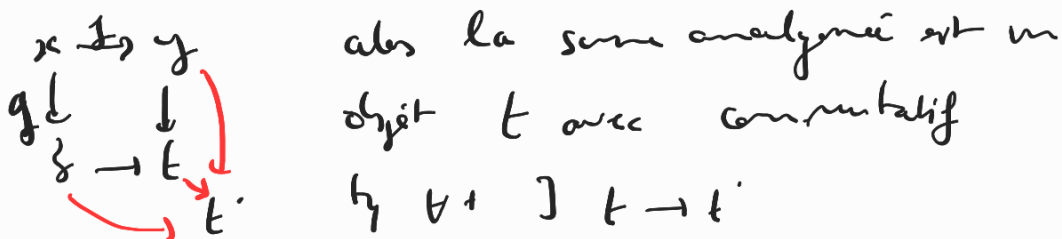 x f→ y alors la somme amalgamée est un
g ↓ ↓ objet t avec commutatif
z → t tq ∀t' ∃ t → t'
t'